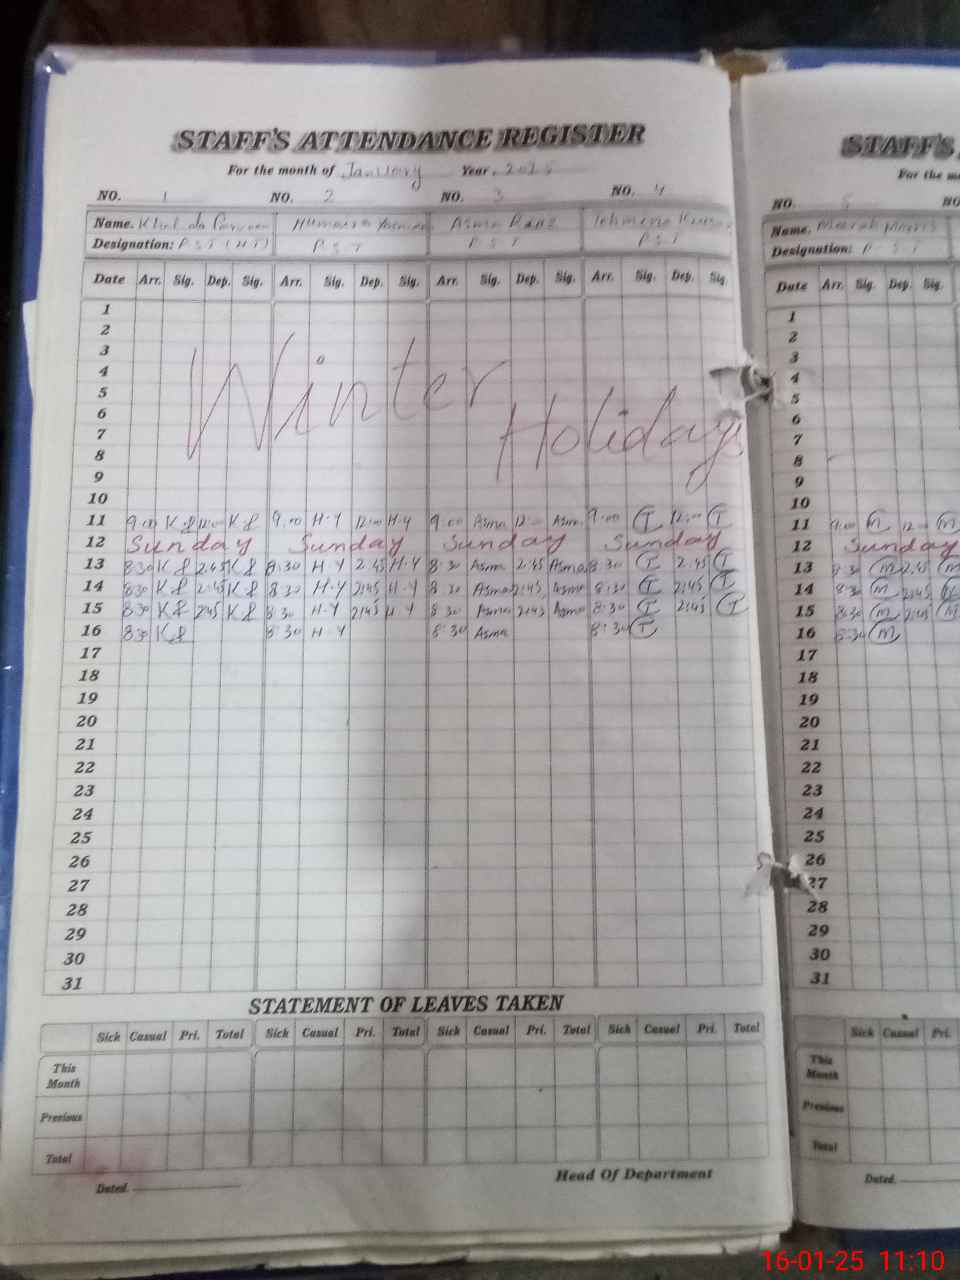 STAFF'S ATTENDANCE REGISTER
For the month of January Year. 2025
NO. 1 NO. 2 NO. 3 NO. 4
Name. Khalida Parveen Humaira Asma
Designation: P S T (H T) P S T P S T P S T
Date Arr. Sig. Dep. Sig. Arr. Sig. Dep. Sig. Arr. Sig. Dep. Sig. Arr. Sig. Dep. Sig.
1
2
3
4
5
6
7
8
9
10
Winter Holidays
11 9:00 K P 12:00 K P 9:00 H-Y 12:00 H-Y 9:00 Asma 12:00 Asma 9:00 T 12:00 T
12 Sunday Sunday Sunday Sunday
13 8:30 K P 2:45 K P 8:30 H-Y 2:45 H-Y 8:30 Asma 2:45 Asma 8:30 T 2:45 T
14 8:30 K P 2:45 K P 8:30 H-Y 2:45 H-Y 8:30 Asma 2:45 Asma 8:30 T 2:45 T
15 8:30 K P 2:45 K P 8:30 H-Y 2:45 H-Y 8:30 Asma 2:45 Asma 8:30 T 2:45 T
16 8:30 K P 8:30 H-Y 8:30 Asma 8:30 T
17
18
19
20
21
22
23
24
25
26
27
28
29
30
31
STATEMENT OF LEAVES TAKEN
Sick Casual Pri. Total Sick Casual Pri. Total Sick Casual Pri. Total Sick Casual Pri. Total
This Month
Previous
Total
Dated. Head Of Department
STAFF'S
For the
NO. 5 NO
Name.
Designation: P S T
Date Arr. Sig. Dep. Sig.
1
2
3
4
5
6
7
8
9
10
11 9:00 M 12:00 M
12 Sunday
13 8:30 M 2:45 M
14 8:30 M 2:45 M
15 8:30 M 2:45 M
16 8:30 M
17
18
19
20
21
22
23
24
25
26
27
28
29
30
31
Sick Casual Pri.
This Month
Previous
Total
Dated.
16-01-25 11:10